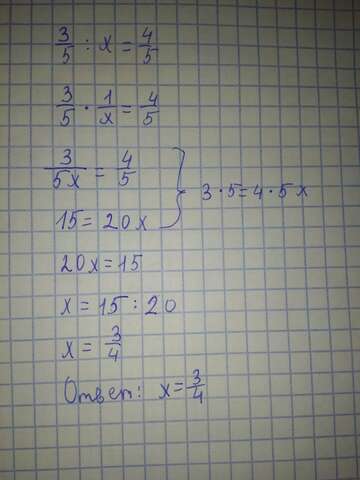 3/5 : x = 4/5
3/5 · 1/x = 4/5
3/5x = 4/5
15 = 20x
} 3 · 5 = 4 · 5x
20x = 15
x = 15 : 20
x = 3/4
Ответ: x = 3/4